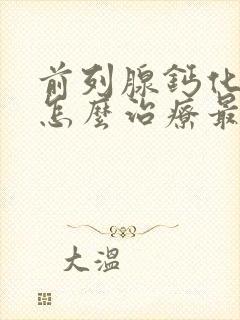 前列腺鈣化
怎麼治療最
大溫